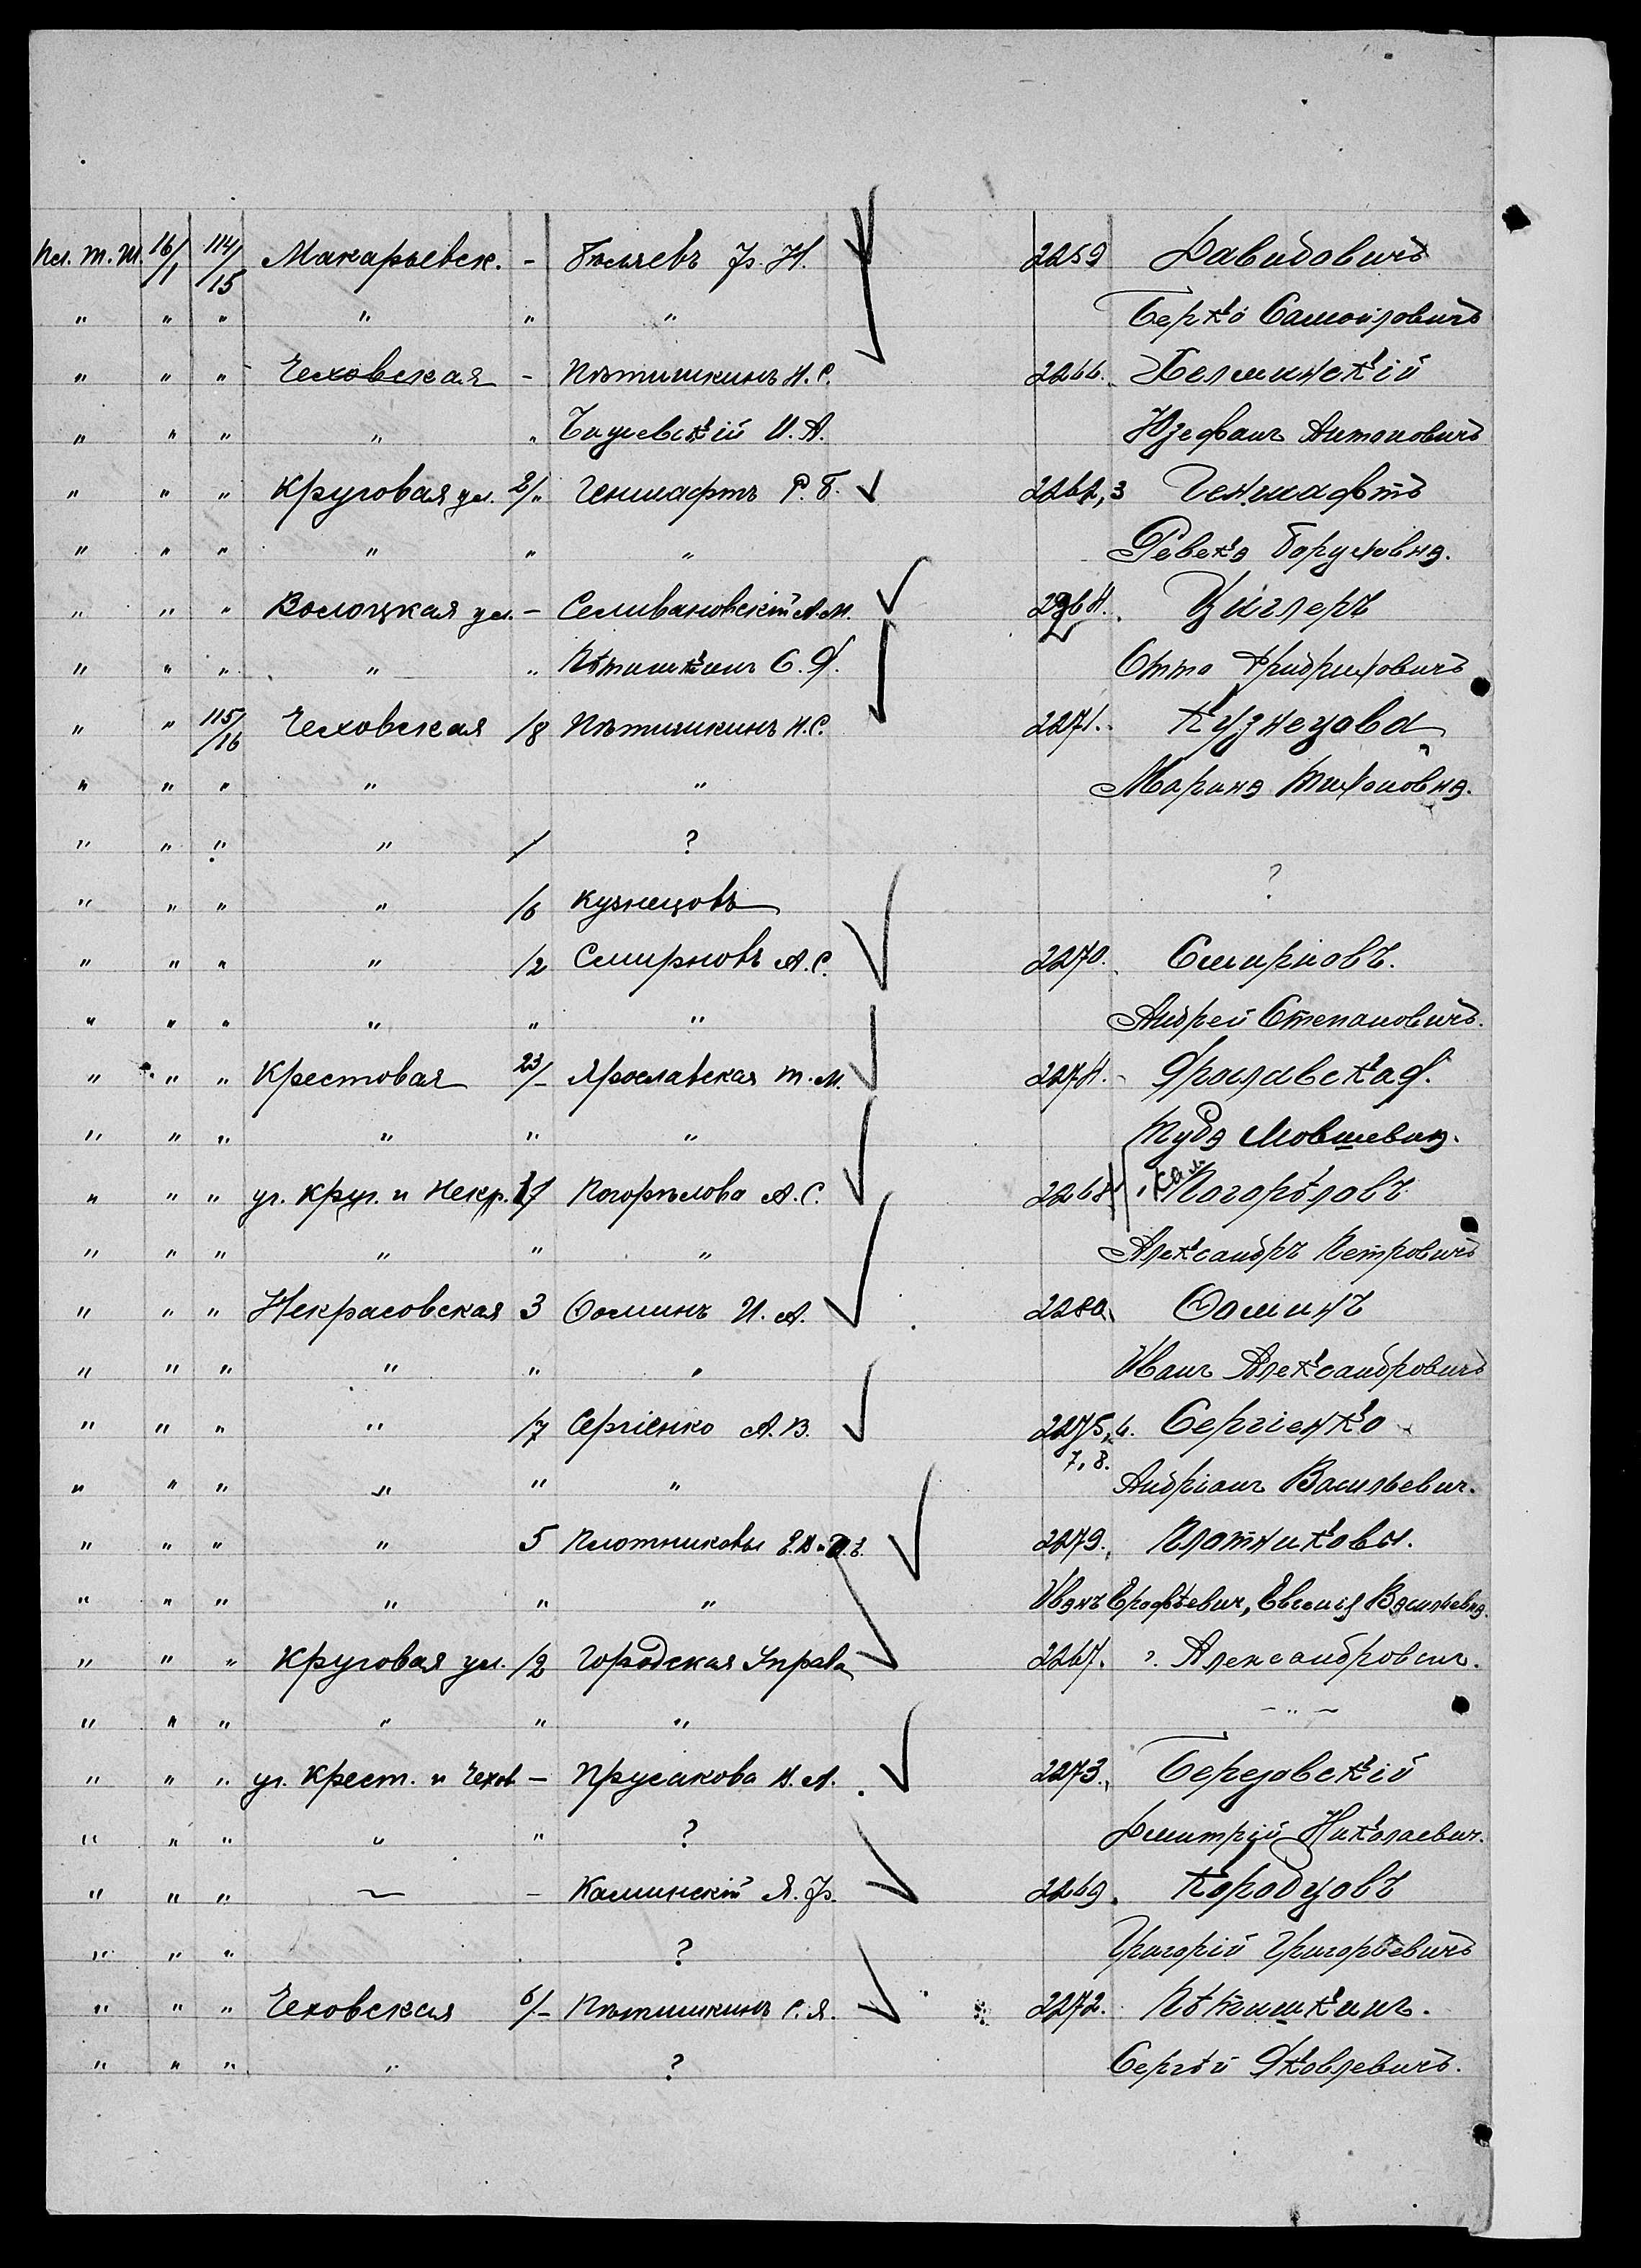 Пл. т. Ш. 16/1 114/15 Макарьевск. - Бѣляевъ Ф. Н. 2259 Давидовичъ
" " " " " " Берко Самойловичъ
" " " Чеховская - Пѣтишкинъ Н. С. 2266. Хелминскій
" " " " " И. А. Юзефанъ Антоновичъ
" " " Круговая ул. 2/" Геншафтъ Р. Б. 2262,3 Геншафтъ
" " " " " " Ревека Боруховна.
" " " Волоцкая ул. - Селивановскій А. М. 2264. Циглеръ
" " " " " Пѣтишкинъ С. Я. Отто Фридриховичъ
" " 115/16 Чеховская /8 Пѣтишкинъ Н. С. 2271. Кузнецова
" " " " " Марина Тихоновна.
" " " " / ? ?
" " " " /6 Кузнецовъ
" " " " /2 Смирновъ А. С. 2270. Смирновъ.
" " " " " " Андрей Степановичъ.
" " " Крестовая 23/- Ярославская Т. М. 2274. - Ярославская.
" " " " " " Туба Мовшевна.
" " " уг. Круг. и Некр. 17 Погорѣлова А. С. 2268 Погорѣловъ
" " " " " " Александръ Петровичъ
" " " Некрасовская 3 Ѳоминъ И. А. 2280. Ѳоминъ
" " " " " " Иванъ Александровичъ
" " " " /7 Сергіенко А. В. 2275,6. Сергіенко
7, 8.
" " " " " " Андріанъ Васильевич.
" " " " 5 Плотниковы Е. В. и И. Е. 2279. Плотниковы.
" " " " " " Иванъ Ерофѣевич, Евгенія Васильевна.
" " " Круговая ул. /2 Городская Управа 2267. ?. Александрович.
" " " " " " - " -
" " " уг. Крест. и Чехов. - Прусакова Н. А. 2273. Березовскій
" " " " " ? Дмитрій Николаевич.
" " " ~ - Каминскій Я. Ф. 2269. Кородцовъ
" " " ? Григорій Григорьевичъ
" " " Чеховская 6/- Пѣтишкинъ С. Я. 2272. Пѣтишкинъ.
" " " " ? Сергѣй Яковлевичъ.